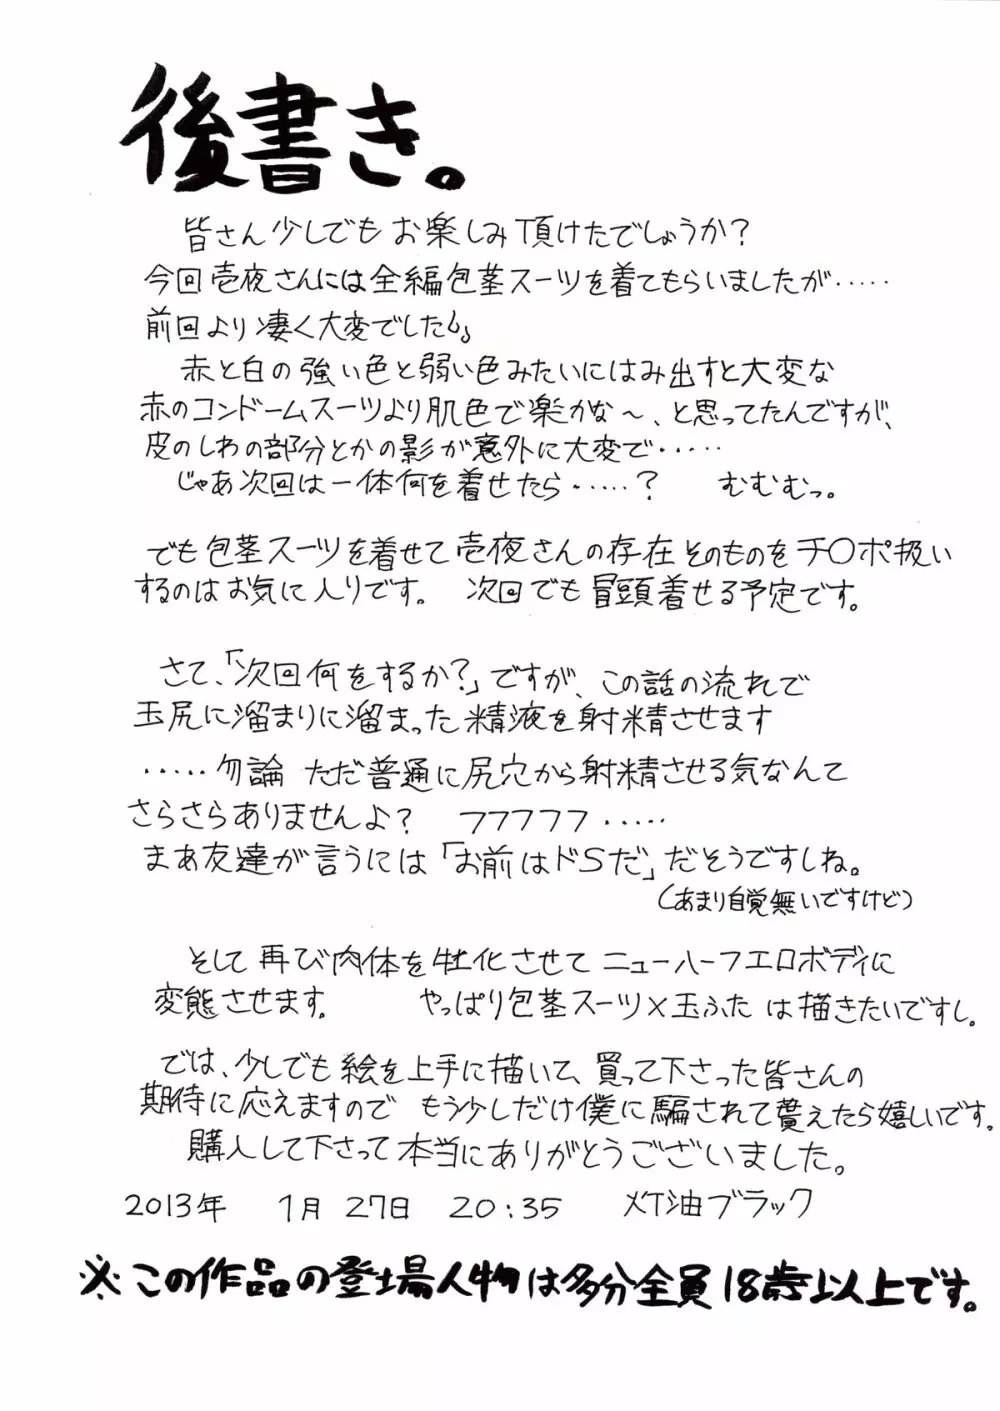 後書き。
皆さん少しでもお楽しみ頂けたでしょうか?
今回壱夜さんには全編包茎スーツを着てもらいましたが・・・・・
前回より凄く大変でした
赤と白の強い色と弱い色みたいにはみ出すと大変な
赤のコンドームスーツより肌色で楽かな～、と思ってたんですが、
皮のしわの部分とかの影が意外に大変で・・・・・
じゃあ次回は一体何を着せたら・・・・・? むむむっ。
でも包茎スーツを着せて壱夜さんの存在そのものをチ〇ポ扱い
するのはお気に入りです。 次回でも冒頭着せる予定です。
さて、「次回何をするか?」ですが、この話の流れで
玉尻に溜まりに溜まった精液を射精させます
・・・・・勿論 ただ普通に尻穴から射精させる気なんて
さらさらありませんよ? フフフフフ・・・・・
まあ友達が言うには「お前はドSだ」だそうですしね。
(あまり自覚無いですけど)
そして再び肉体を牡化させてニューハーフエロボディに
変態させます。 やっぱり包茎スーツ×玉ふたは描きたいですし。
では、少しでも絵を上手に描いて、買って下さった皆さんの
期待に応えますので もう少しだけ僕に騙されて貰えたら嬉しいです。
購入して下さって本当にありがとうございました。
2013年 1月27日 20:35 油ブラック
※この作品の登場人物は多分全員18歳以上です。